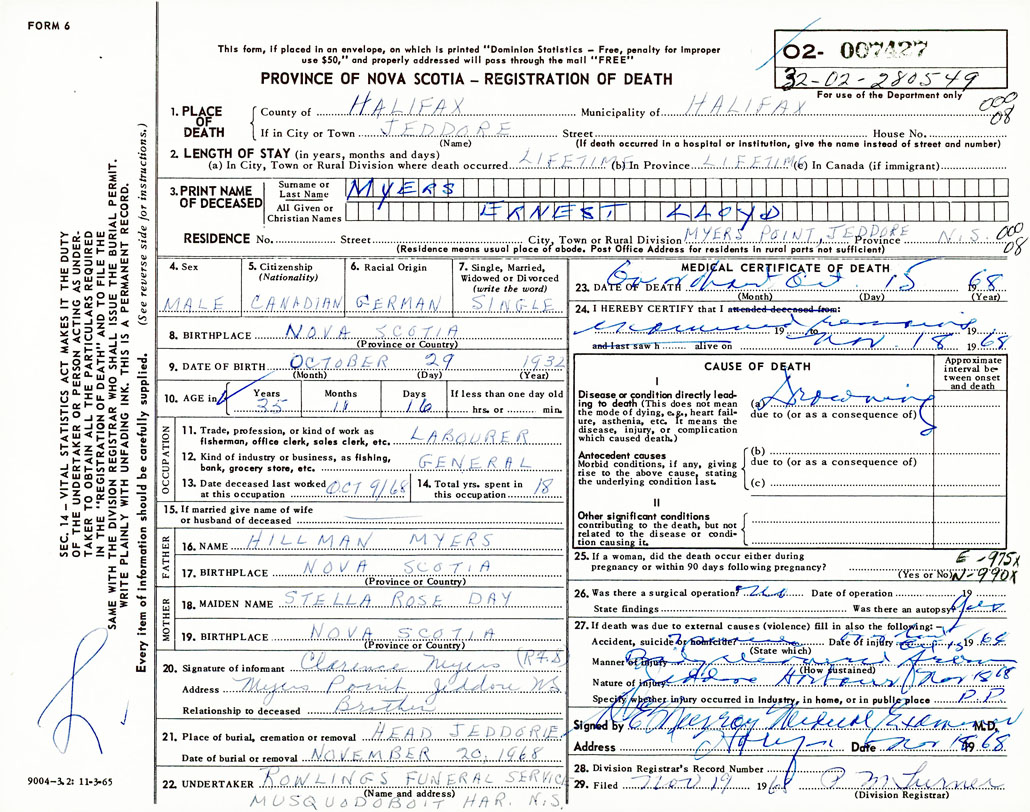 FORM 6
This form, if placed in an envelope, on which is printed "Dominion Statistics – Free, penalty for improper
use $50," and properly addressed will pass through the mail "FREE"
PROVINCE OF NOVA SCOTIA – REGISTRATION OF DEATH
02- 007427
32-02-280549
For use of the Department only
000
08
1. PLACE OF DEATH
County of HALIFAX Municipality of HALIFAX
If in City or Town JEDDORE Street House No.
(Name) (If death occurred in a hospital or institution, give the name instead of street and number)
2. LENGTH OF STAY (in years, months and days)
(a) In City, Town or Rural Division where death occurred LIFETIME (b) In Province LIFETIME (c) In Canada (if immigrant)
3. PRINT NAME OF DECEASED
Surname or Last Name MYERS
All Given or Christian Names ERNEST LLOYD
RESIDENCE No. Street City, Town or Rural Division MYERS POINT, JEDDORE Province N.S. 000
08
(Residence means usual place of abode. Post Office Address for residents in rural parts not sufficient)
4. Sex
MALE
5. Citizenship
(Nationality)
CANADIAN
6. Racial Origin
GERMAN
7. Single, Married,
Widowed or Divorced
(write the word)
SINGLE
8. BIRTHPLACE NOVA SCOTIA
(Province or Country)
9. DATE OF BIRTH OCTOBER 29 1932
(Month) (Day) (Year)
10. AGE in Years Months Days If less than one day old
35 11 16 hrs. or min.
OCCUPATION
11. Trade, profession, or kind of work as
fisherman, office clerk, sales clerk, etc. LABOURER
12. Kind of industry or business, as fishing,
bank, grocery store, etc. GENERAL
13. Date deceased last worked
at this occupation OCT 9/68
14. Total yrs. spent in
this occupation 18
15. If married give name of wife
or husband of deceased
FATHER
16. NAME HILLMAN MYERS
17. BIRTHPLACE NOVA SCOTIA
(Province or Country)
MOTHER
18. MAIDEN NAME STELLA ROSE DAY
19. BIRTHPLACE NOVA SCOTIA
(Province or Country)
20. Signature of informant Clarence Myers
Address Myers Point Jeddore NS
Relationship to deceased Brother
21. Place of burial, cremation or removal HEAD JEDDORE
Date of burial or removal NOVEMBER 20, 1968
22. UNDERTAKER ROWLINGS FUNERAL SERVICE
(Name and address)
MUSQUODOBOIT HAR. N.S.
MEDICAL CERTIFICATE OF DEATH
23. DATE OF DEATH On or about Oct. 15 1968
(Month) (Day) (Year)
24. I HEREBY CERTIFY that I attended deceased from:
examined remains 19 to 19
and last saw h alive on Nov 18 1968
CAUSE OF DEATH
Approximate
interval be-
tween onset
and death
I
Disease or condition directly lead-
ing to death (This does not mean
the mode of dying, e.g., heart fail-
ure, asthenia, etc. It means the
disease, injury, or complication
which caused death.)
(a) Drowning
due to (or as a consequence of)
Antecedent causes
Morbid conditions, if any, giving
rise to the above cause, stating
the underlying condition last.
(b)
due to (or as a consequence of)
(c)
II
Other significant conditions
contributing to the death, but not
related to the disease or condi-
tion causing it.
25. If a woman, did the death occur either during
pregnancy or within 90 days following pregnancy?
(Yes or No)
E-975X
N-990X
26. Was there a surgical operation? No Date of operation 19
State findings Was there an autopsy? Yes
27. If death was due to external causes (violence) fill in also the following: –
Accident, suicide or homicide? Date of injury Oct 15 19
(State which)
Manner of injury Body recovered from
(How sustained)
Nature of injury Jeddore Harbour Nov 18 68
Specify whether injury occurred in Industry, in home, or in public place P.P.
Signed by Medical Examiner M.D.
Address Date Nov 18 1968
28. Division Registrar's Record Number
29. Filed NOV 19 1968 P M Turner
(Division Registrar)
SEC. 14 – VITAL STATISTICS ACT MAKES IT THE DUTY
OF THE UNDERTAKER OR PERSON ACTING AS UNDER-
TAKER TO OBTAIN ALL THE PARTICULARS REQUIRED
IN THE "REGISTRATION OF DEATH" AND TO FILE THE
SAME WITH THE DIVISION REGISTRAR WHO SHALL ISSUE THE BURIAL PERMIT.
WRITE PLAINLY WITH UNFADING INK. THIS IS A PERMANENT RECORD.
Every item of information should be carefully supplied. (See reverse side for instructions.)
9004-3.2: 11-3-65